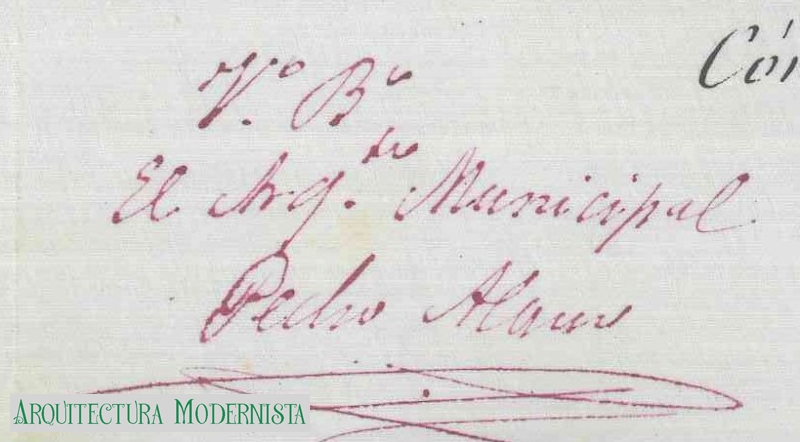 Cór
Vº Bº
El Arq.to Municipal
Pedro Alonso
ARQUITECTURA MODERNISTA